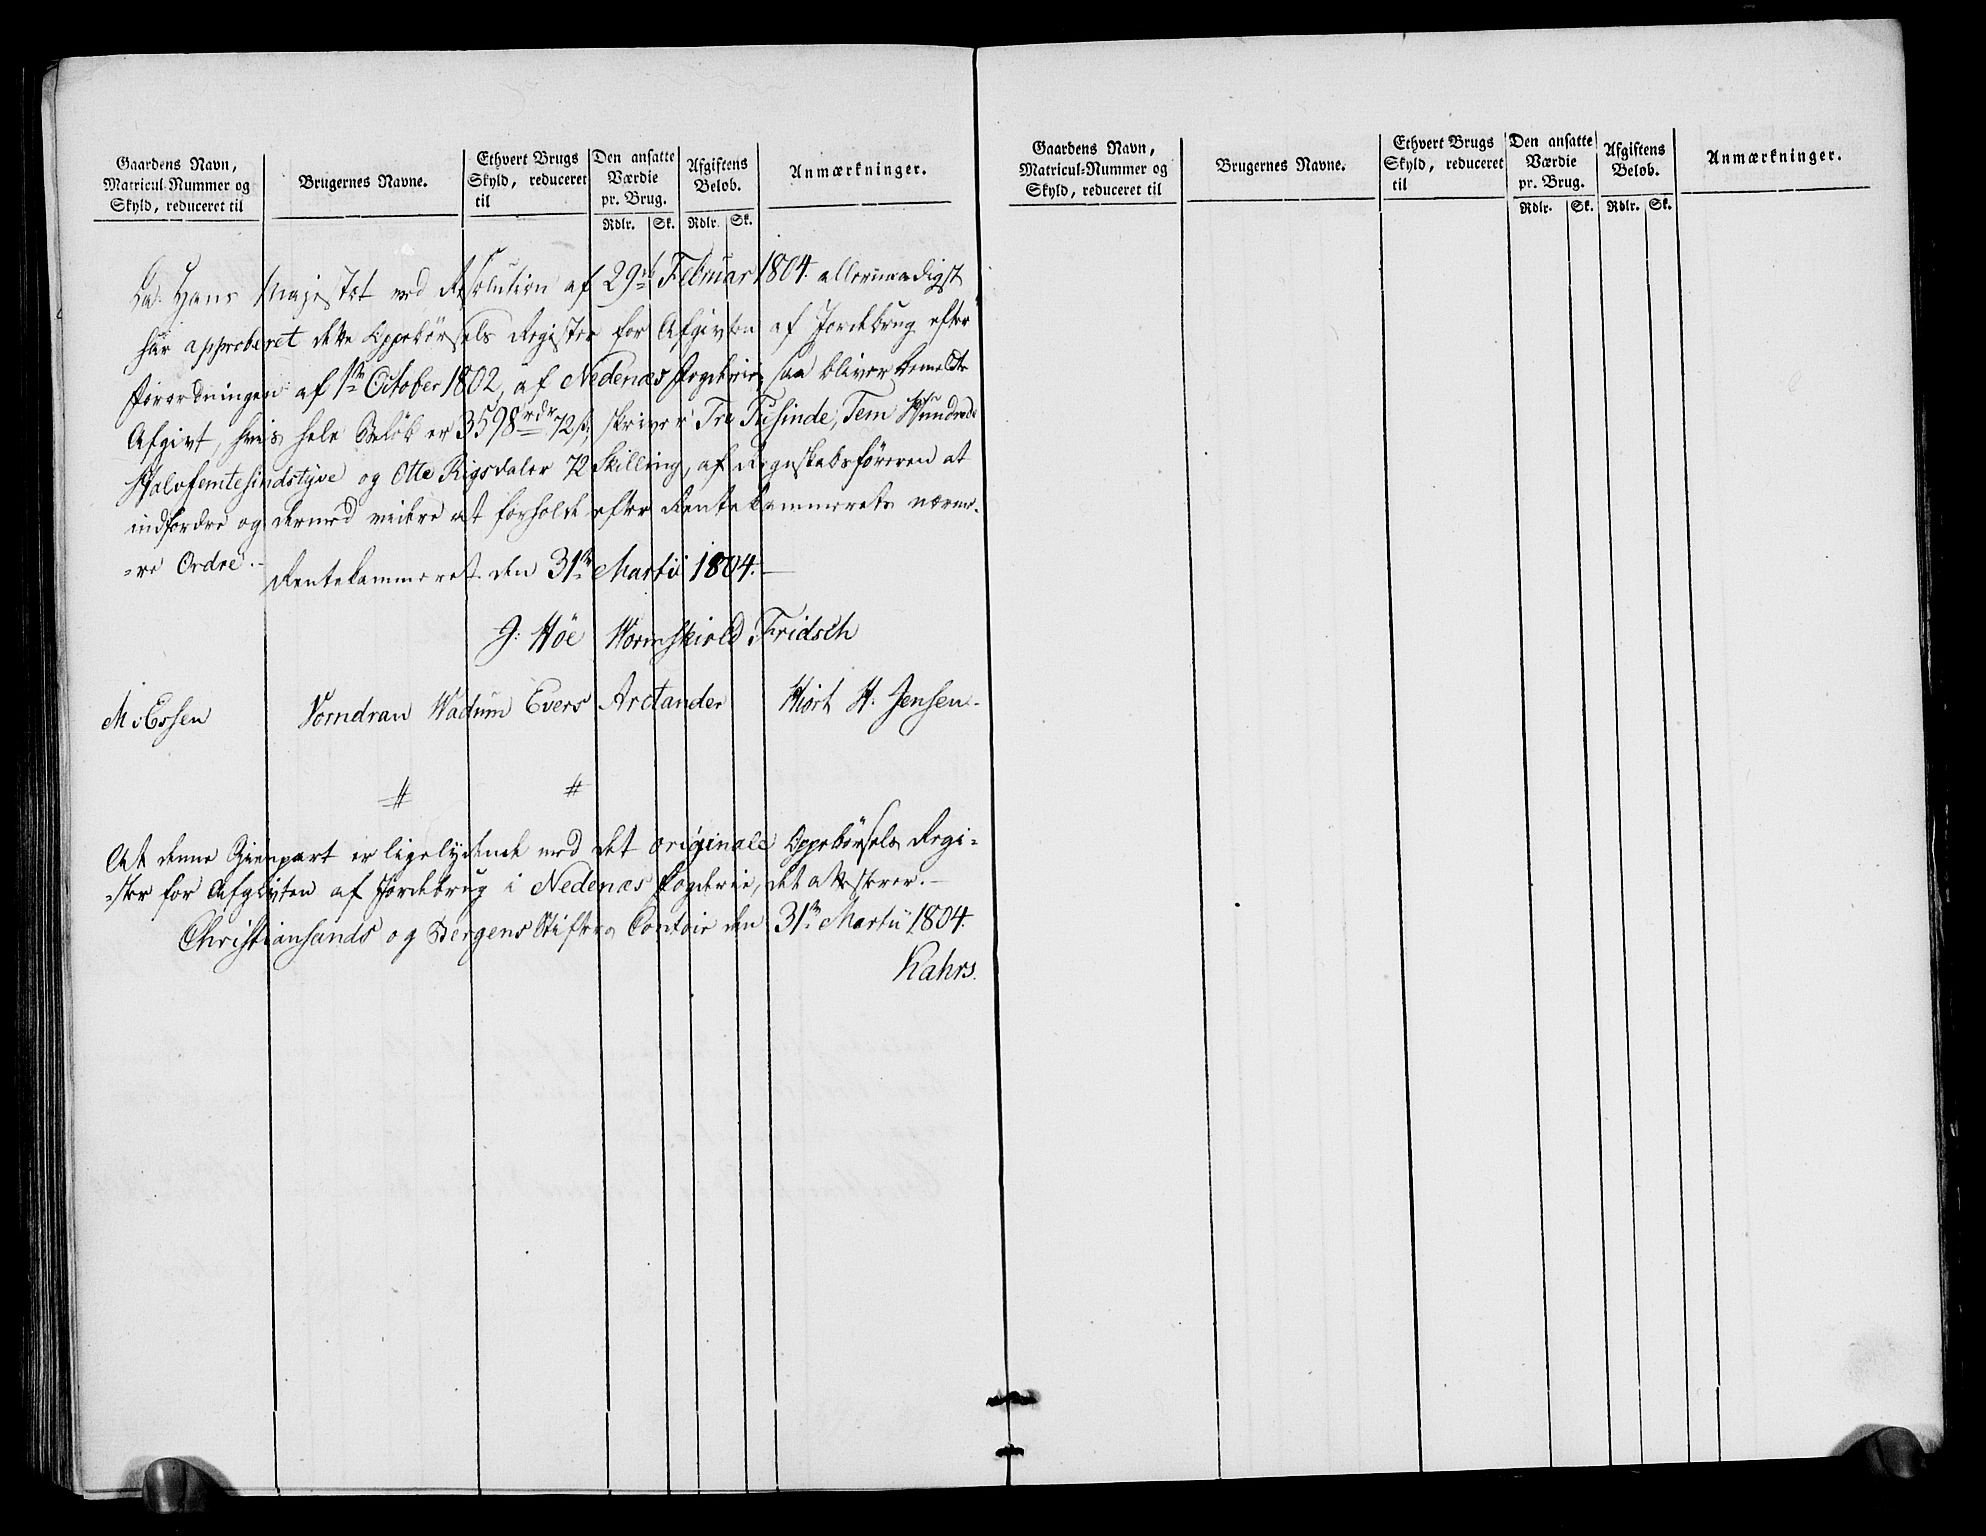 Gaardens Navn,
Matricul-Nummer og
Skyld, reduceret til
Brugernes Navne.
Ethvert Brugs
Skyld, reduceret
til
Den ansatte
Værdie
pr. Brug.
Rdlr. Sk.
Afgiftens
Beløb.
Rdlr. Sk.
Anmærkninger.
Da Hans Majestæt ved Resolution af 29de Februar 1804 allernaadigst
har approberet dette Oppebørsels Register for Afgivten af Jordebrug efter
Forordningen af 1ste October 1802, af Nedenæs Fogderie, saa bliver bemeldte
Afgivt, hvis hele Beløb er 3598 rdr 72 s, skriver Tre Tusinde, Fem Hundrede
Halvfemtesindstyve og Otte Rigsdaler 72 Skilling, af Regnskabsføreren at
indfordre og dermed videre at forholde efter Rentekammerets nærme-
-re Ordre.-
Rentekammeret den 31te Martii 1804.-
J: Höe Wormskiold Fridsch
M: Essen Vorndran Wadum Evers Arctander Hiort H. Jensen-
# #
At denne Gienpart er ligelydende med det originale Oppebørsels Regi-
-ster for Afgivten af Jordebrug i Nedenæs Fogderie, det attesterer.-
Christiansands og Bergens Stifters Contoir den 31te Martii 1804.
Kahrs.
Gaardens Navn,
Matricul-Nummer og
Skyld, reduceret til
Brugernes Navne.
Ethvert Brugs
Skyld, reduceret
til
Den ansatte
Værdie
pr. Brug.
Rdlr. Sk.
Afgiftens
Beløb.
Rdlr. Sk.
Anmærkninger.